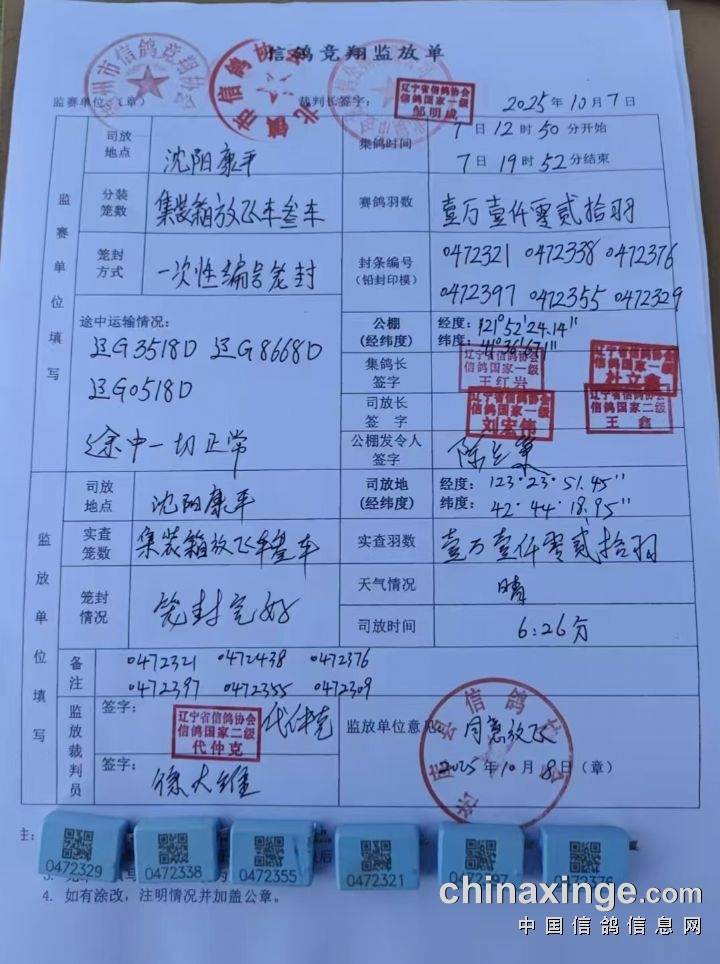 信鸽竞翔监放单
监赛单位:(章) 裁判长签字: 辽宁省信鸽协会 信鸽国家一级 邹明成 2025年10月7日
监赛单位填写
司放地点 沈阳康平 集鸽时间 7日12时50分开始
7日19时52分结束
分装笼数 集装箱放飞车叁车 赛鸽羽数 壹万壹仟零贰拾羽
笼封方式 一次性编号笼封 封条编号(铅封印模) 0472321 0472338 0472376
0472397 0472355 0472329
途中运输情况: 公棚(经纬度) 经度: 121°52′24.14″
纬度:
辽G3518D 辽G8668D 集鸽长签字 辽宁省信鸽协会 信鸽国家一级 王红岩 辽宁省信鸽协会 信鸽国家一级 杜立鑫
辽G0518D 司放长签字 辽宁省信鸽协会 信鸽国家一级 刘宏伟 辽宁省信鸽协会 信鸽国家二级 王鑫
途中一切正常 公棚发令人签字
监放单位填写
司放地点 沈阳康平 司放地(经纬度) 经度: 123°23′51.45″
纬度: 42°44′18.95″
实查笼数 集装箱放飞车叁车 实查羽数 壹万壹仟零贰拾羽
笼封情况 笼封完好 天气情况 晴
司放时间 6:26分
备注 0472321 0472438 0472376
0472397 0472355 0472309
监放裁判员 签字: 辽宁省信鸽协会 信鸽国家二级 代仲克 代仲克 监放单位意见 同意放飞
签字: 徐大维 2025年10月8日(章)
主:
0472329 0472338 0472355 0472321
4. 如有涂改,注明情况并加盖公章。
chinaxinge.com
中国信鸽信息网